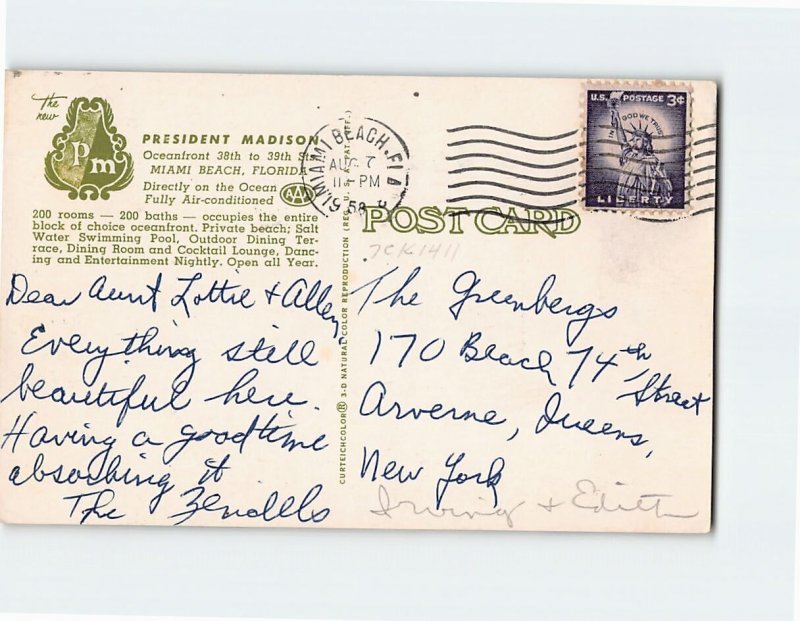 The
new
pm
PRESIDENT MADISON
Oceanfront 38th to 39th Sts.
MIAMI BEACH, FLORIDA
Directly on the Ocean
Fully Air-conditioned
AAA
200 rooms — 200 baths — occupies the entire
block of choice oceanfront. Private beach; Salt
Water Swimming Pool, Outdoor Dining Ter-
race, Dining Room and Cocktail Lounge, Danc-
ing and Entertainment Nightly. Open all Year.
Dear Aunt Lottie & Allen,
Everything still
beautiful here.
Having a good time
absorbing it
The Zendels
CURTEICHCOLOR® 3-D NATURAL COLOR REPRODUCTION (REG. U.S. PAT. OFF.)
MIAMI BEACH, FLA
AUG 7
11 - PM
1958
U.S. POSTAGE 3¢
IN GOD WE TRUST
LIBERTY
POST CARD
7CK1411
The Greenbergs
170 Beach 74th Street
Arverne, Queens,
New York
Irving & Edith